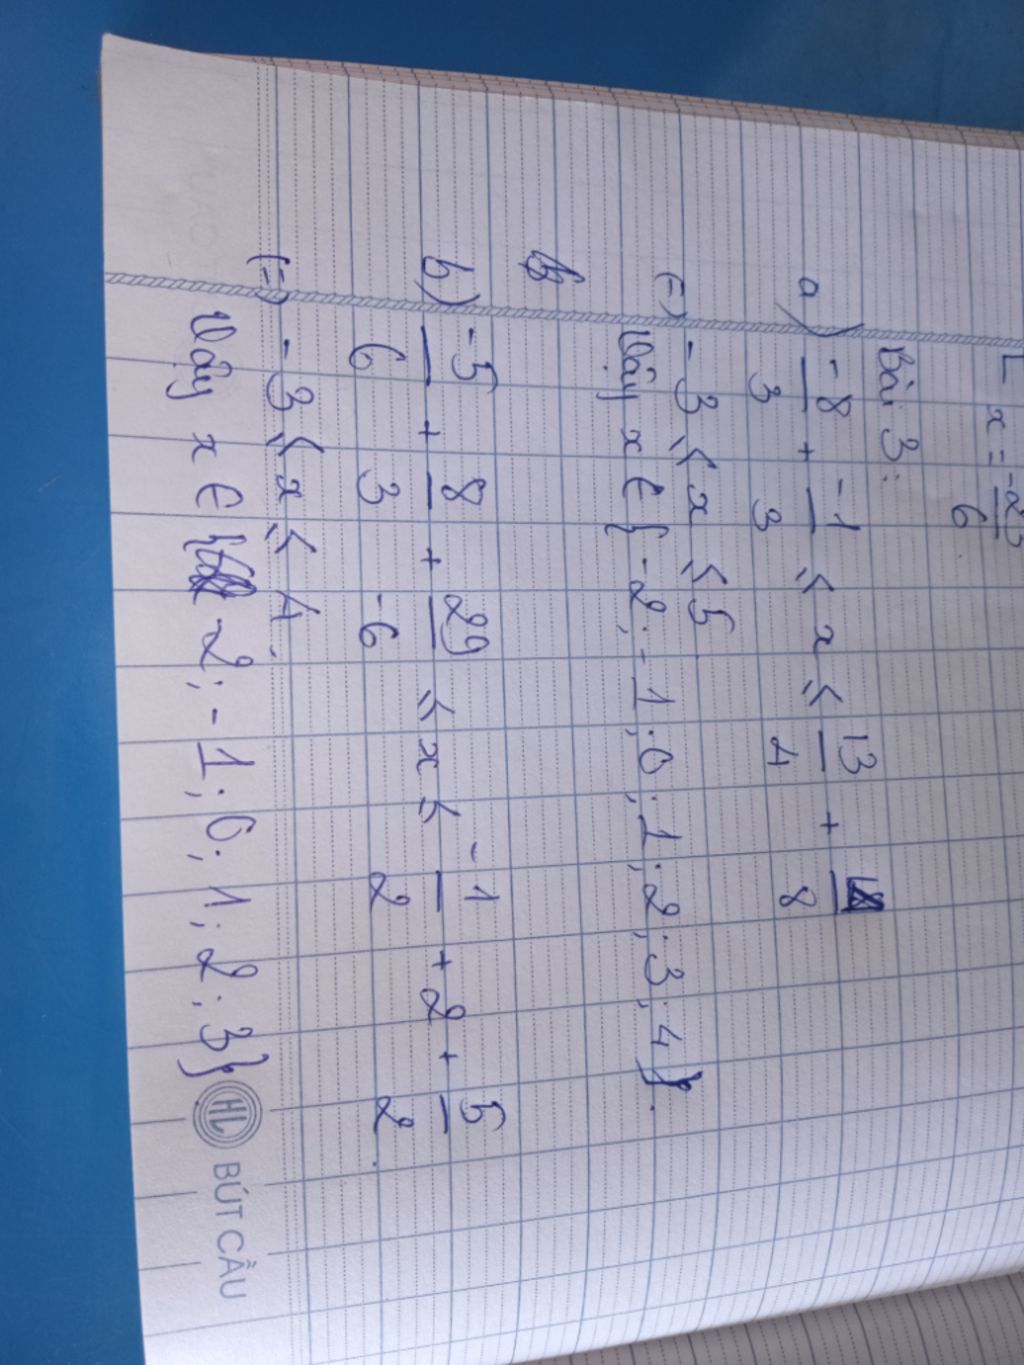 x = -23/6.
Bài 3:
a) -8/3 + -1/3 ≤ x ≤ 13/4 + /8
(=) -3 ≤ x ≤ 5
Vậy x ∈ { -2; -1; 0; 1; 2; 3; 4 }.
b) -5/6 + 8/3 + 29/-6 ≤ x ≤ -1/2 + 2 + 5/2.
(=) -3 ≤ x ≤ 4.
Vậy x ∈ { -2; -1; 0; 1; 2; 3 }
HL BÚT CẦU